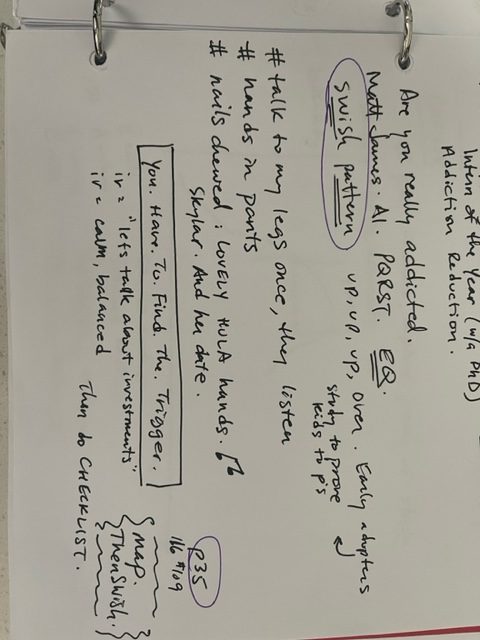 Intern of the Year (w/a PhD)
Addiction Reduction.
Are you really addicted.
Matt James. A1. PQRST. EQ.
Swish pattern up, up, up, over. Early adopters
study to prove
kids to p's
# talk to my legs once, they listen
# hands in pants
# nails chewed : LOVELY HULA hands.
Skylar. And her date.
You. Have. To. Find. The. Trigger.
iv = "let's talk about investments".
iv = calm, balanced Then do CHECKLIST.
p35
116 #109
{ map. }
{ Then Swish. }